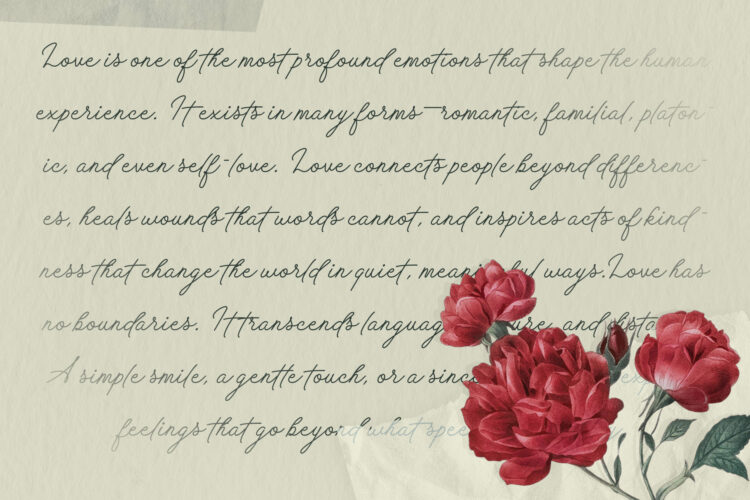 Love is one of the most profound emotions that shape the human
experience. It exists in many forms—romantic, familial, platon-
ic, and even self-love. Love connects people beyond differenc-
es, heals wounds that words cannot, and inspires acts of kind-
ness that change the world in quiet, meaningful ways. Love has
no boundaries. It transcends and
A simple smile, a gentle touch, or a
feelings that go beyond what